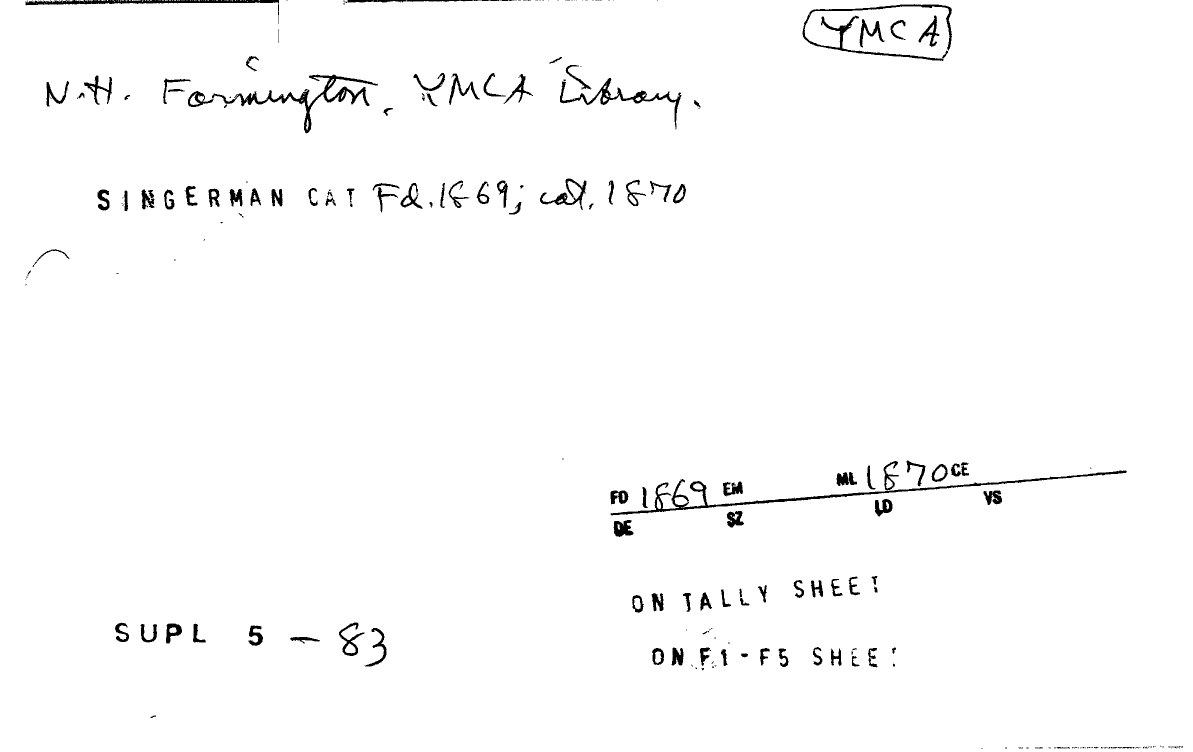 YMCA
N.H. Farmington. YMCA Library.
SINGERMAN CAT Fd. 1869; cat. 1870
FD 1869 EM ML 1870 CE
DE SZ LD VS
ON TALLY SHEET
SUPL 5 - 83
ON F1-F5 SHEET